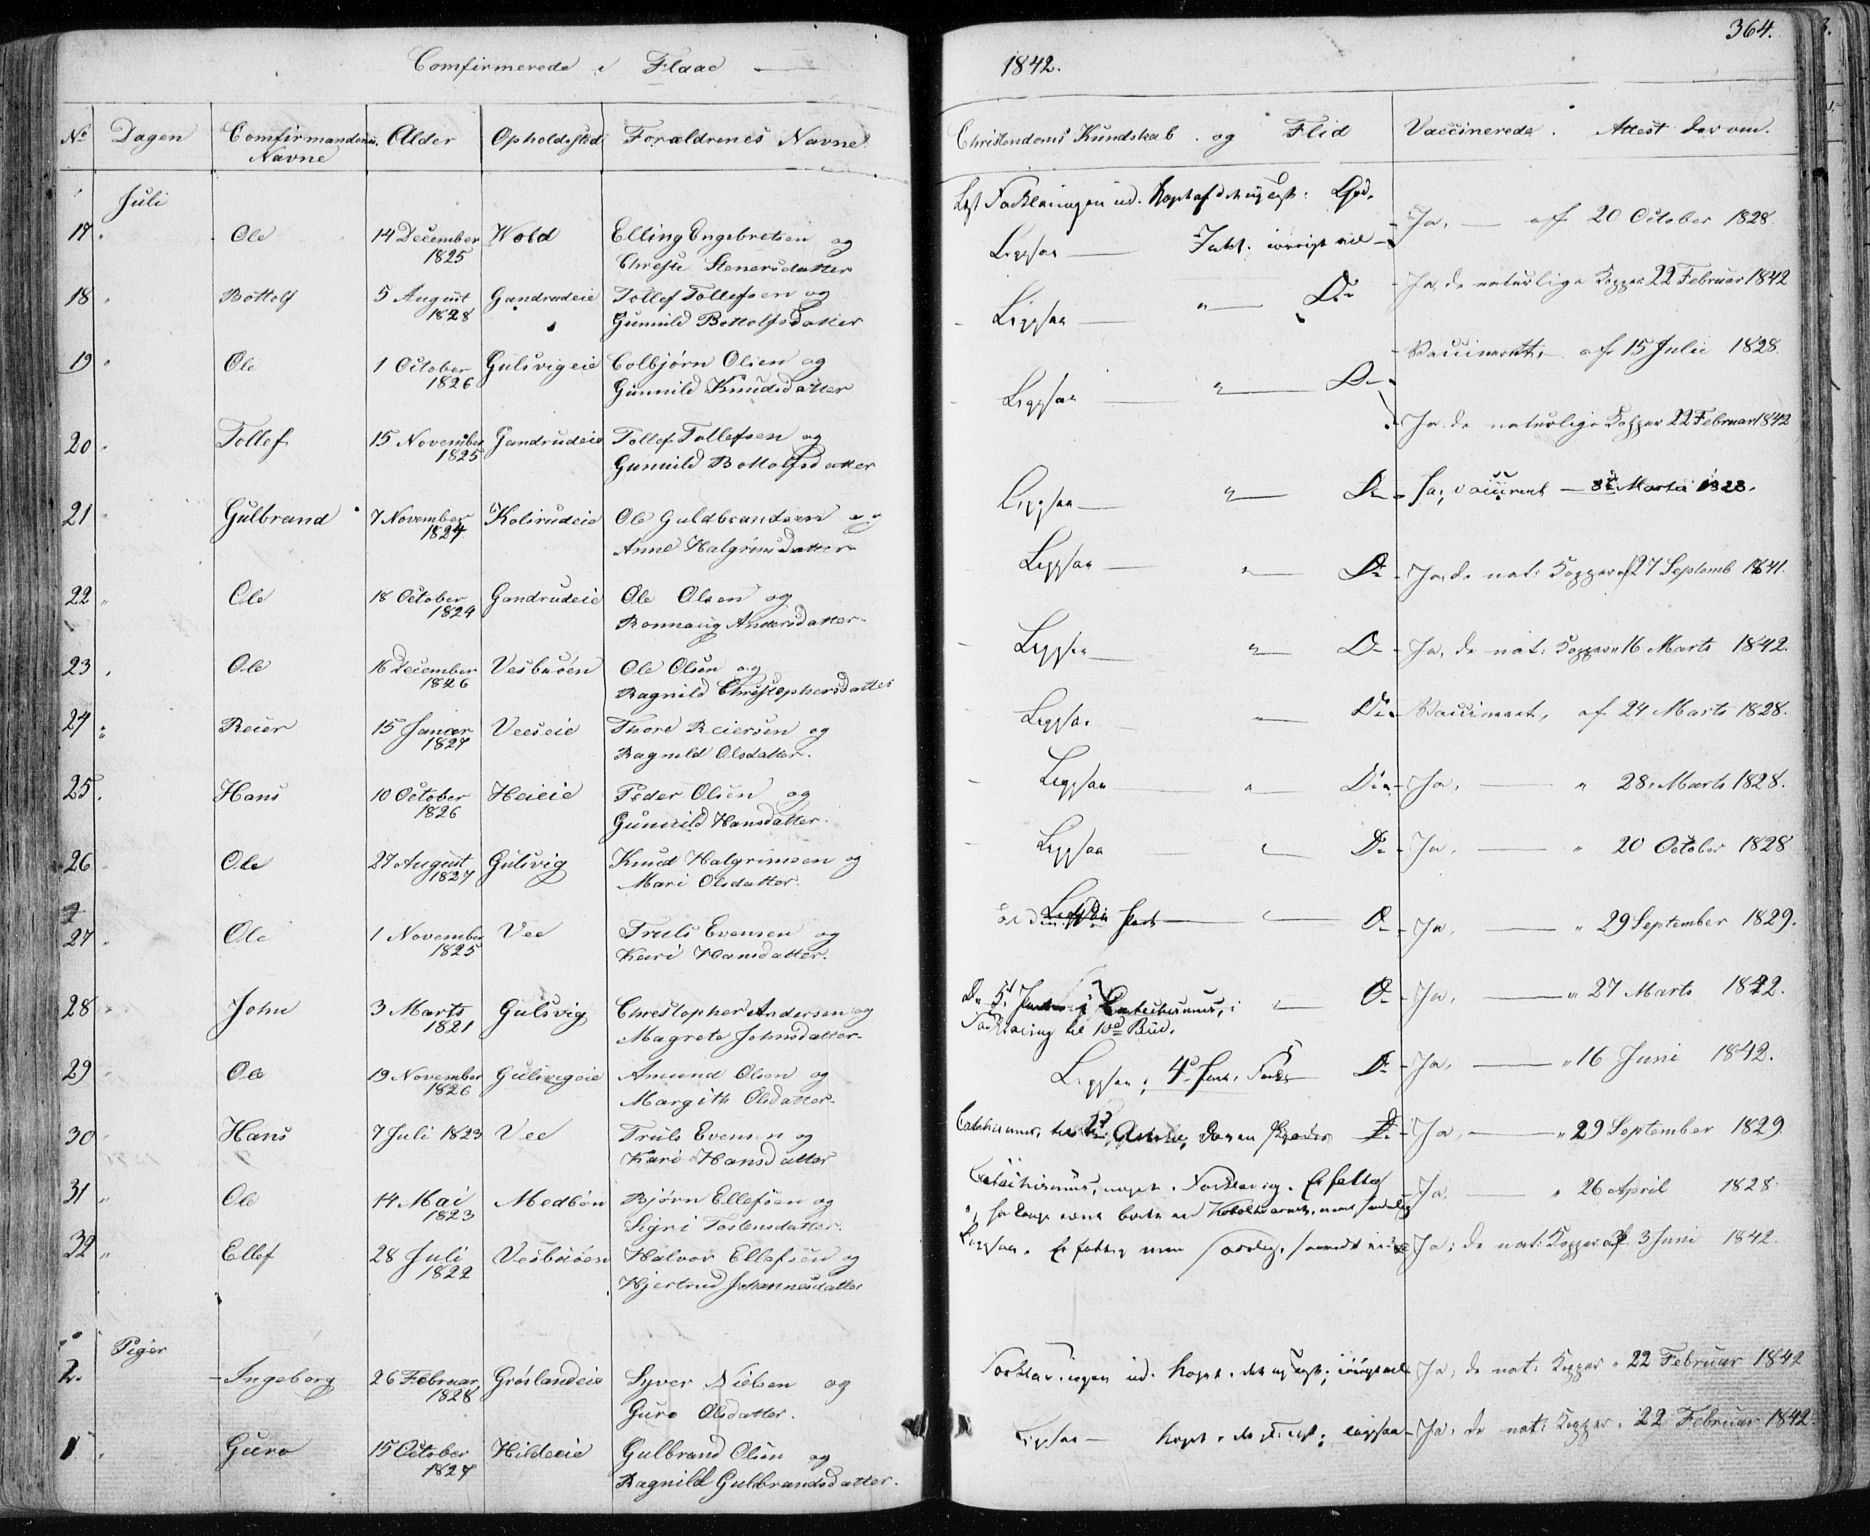 364.
Comfirmerede i Flaae 1842.
No Dagen Comfirmandens Navne Alder Opholdssted Forældrenes Navne Christendoms Kundskab og Flid Vaccinerede. Attest derom.
Juli
17. Ole 14 December 1825 Wold Elling Engebretsen og Ja, — af 20 October 1828.
Ligesaa —
18 Bottolf 5 August 1828 Gandrudeie Tollef Tollefsen og Ja, de naturlige Kopper 22 Februar 1842
Gunnild Bottolfsdatter Ligesaa — " — Do
19 " Ole 1 October 1826 Gulsvigeie Colbjørn Olsen og Vaccineret, af 15 Julii 1828.
Gunnild Knudsdatter Ligesaa — " — Do
20 Tollef 15 November 1825 Gandrudeie Tollef Tollefsen og Ja de naturlige Kopper 22 Februar 1842
Gunnild Bottolfsdatter Ligesaa — " — Do
21 Gulbrand 7 November 1824 Kolsrudeie Ole Guldbrandsen og Ja, vaccineret — 8de Martii 1828.
Anne Halgrimsdatter Ligesaa — " — Do
22 " Ole 18 October 1824 Gandrudeie Ole Olsen og Ja, de nat: Kopper af 27 Septemb 1841.
Ronnaug Andersdatter Ligesaa — " Do
23 Ole 16 December 1826 Vesbuöen Ole Olsen og Ja, de nat: Kopper " 16 Marts 1842.
Ragnild Christophersdatter
24 Reier 15 Januar 1827 Veeseie Thore Reiersen og Ligesaa — " Do Vaccineret, af 24 Marts 1828.
Ragnild Olsdatter.
25. Hans 10 October 1826 Heieie Peder Olsen og Ligesaa " Do Ja, — " 28 Marts 1828.
Gunnild Hansdatter.
26 Ole 27 August 1827 Gulsvig Knud Halgrimsen og Ligesaa — " Do Ja, — " 20 October 1828
Mari Olsdatter.
27 Ole 1 November 1825 Vee Truls Evensen og Do Ja, — " 29 September 1829.
Kari Hansdatter.
28 John 3 Marts 1821 Gulsvig Christopher Andersen og Catechismus, i Do Ja, — " 27 Marts 1842.
Magrete Johnsdatter Forklaring til 10de Bud.
29 Ole 19 November 1826 Gulsvigeie Amund Olsen og Ligesaa, 4de Do Ja, — " 16 Juni 1842.
Margith Olsdatter.
30 Hans 7 Juli 1823 Vee Truls Evensen og Catechismus, Do Ja, — " 29 September 1829
Kari Hansdatter
31 Ole 14 Mai 1823 Medbøn Bjørn Ellefsen og Catechismus, noget i Forklaring. Er fattig Ja, — " 26 April 1828.
Sigri Tostensdatter.
32 " Ellef 28 Juli 1822 Vesbuöen Halvor Ellefsen og Ligesaa. Er fattig Ja, de nat: Kopper af 3 Juni 1842.
Hjertrud Johannesdatter
Piger
2. Ingeborg 26 Februar 1828 Gröslandeie Syver Nielsen og Forklaringen ud. Ja, de nat: Kopper " 22 Februar 1842
Guro Olsdatter.
1 Guro 15 October 1827 Hildeeie Gulbrand Olsen og Ligesaa — Ja, de nat: Kopper " 22 Februar 1842.
Ragnild Gulbrandsdatter.